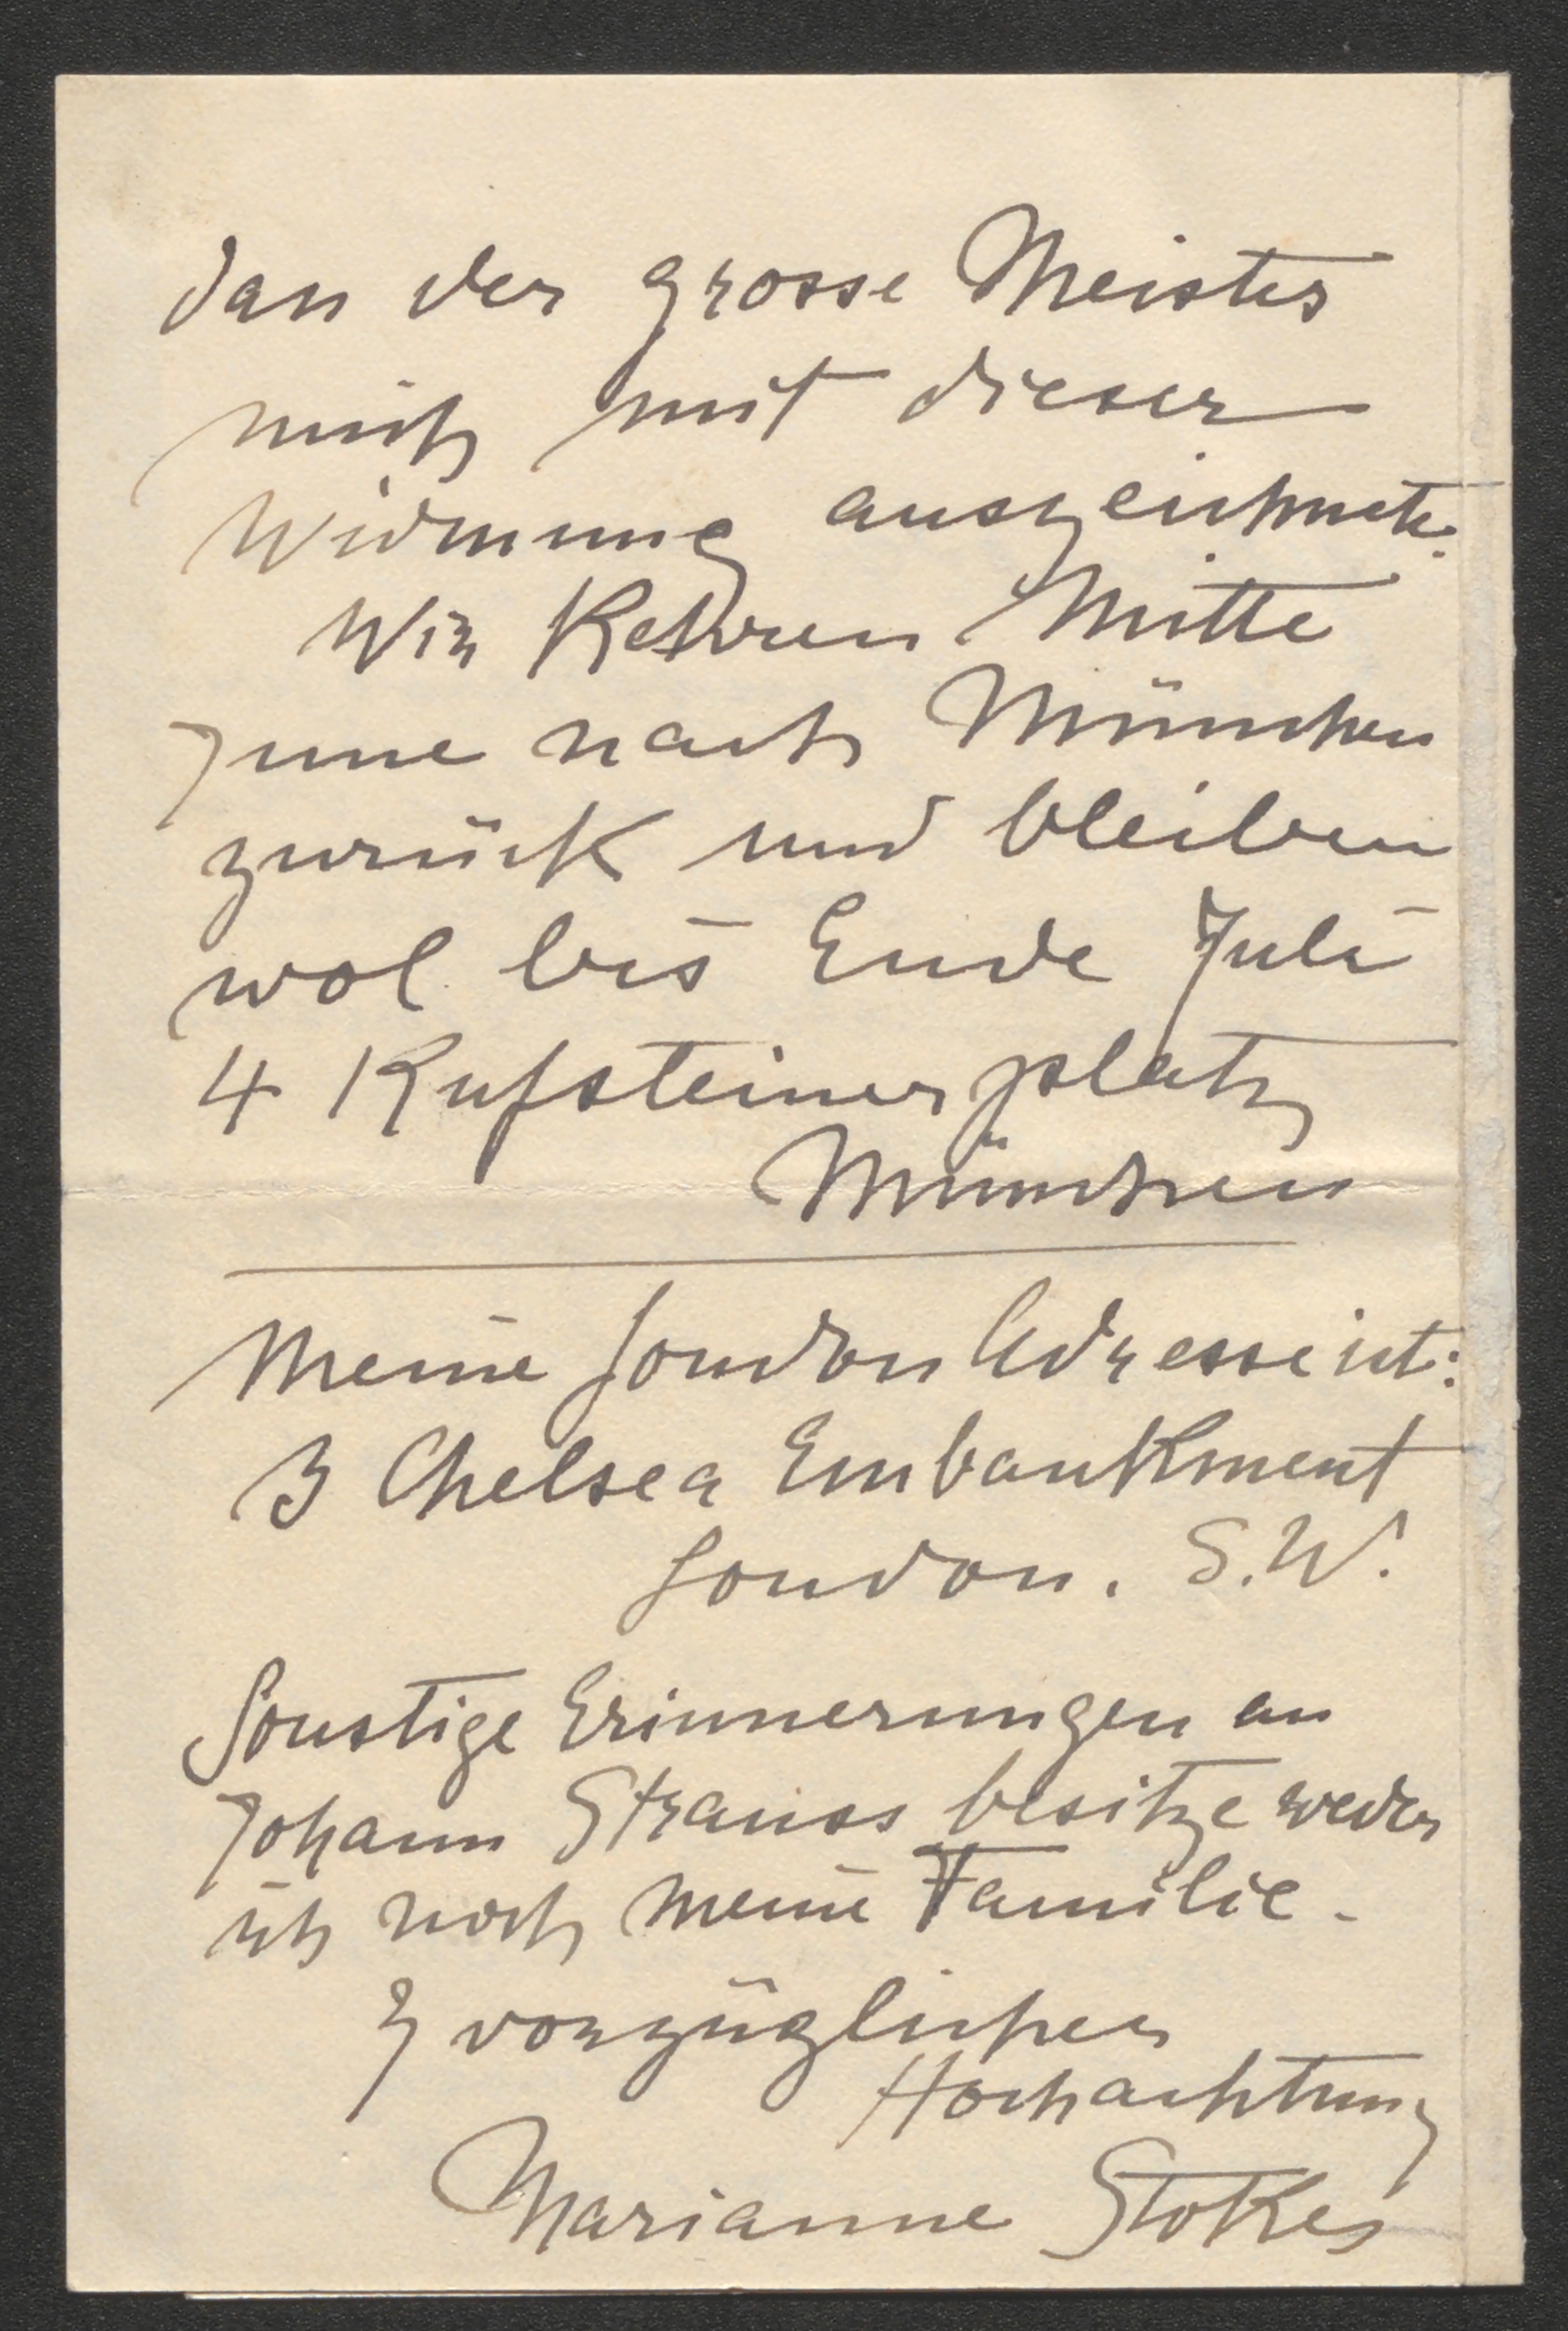 dass der grosse Meister
mich mit dieser
Widmung auszeichnete.
Wir Kehren Mitte
June nach München
zurück und bleiben
wol bis Ende Juli
4 Kufsteinerplatz
München
Meine London Adresse ist:
3 Chelsea Embankment
London. S.W.
Sonstige Erinnerungen an
Johann Strauss besitze weder
ich noch meine Familie.
In vorzüglicher
Hochachtung
Marianne Stokes